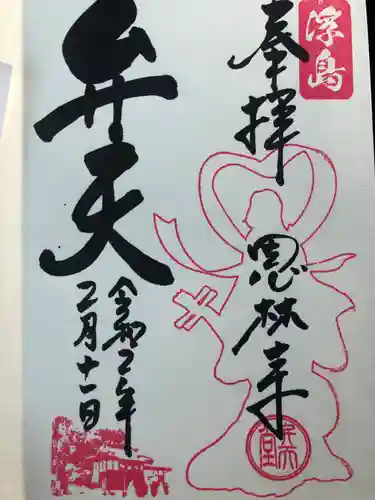 浮島
奉拝
恩林寺
弁天堂
弁天
令和二年
二月十一日